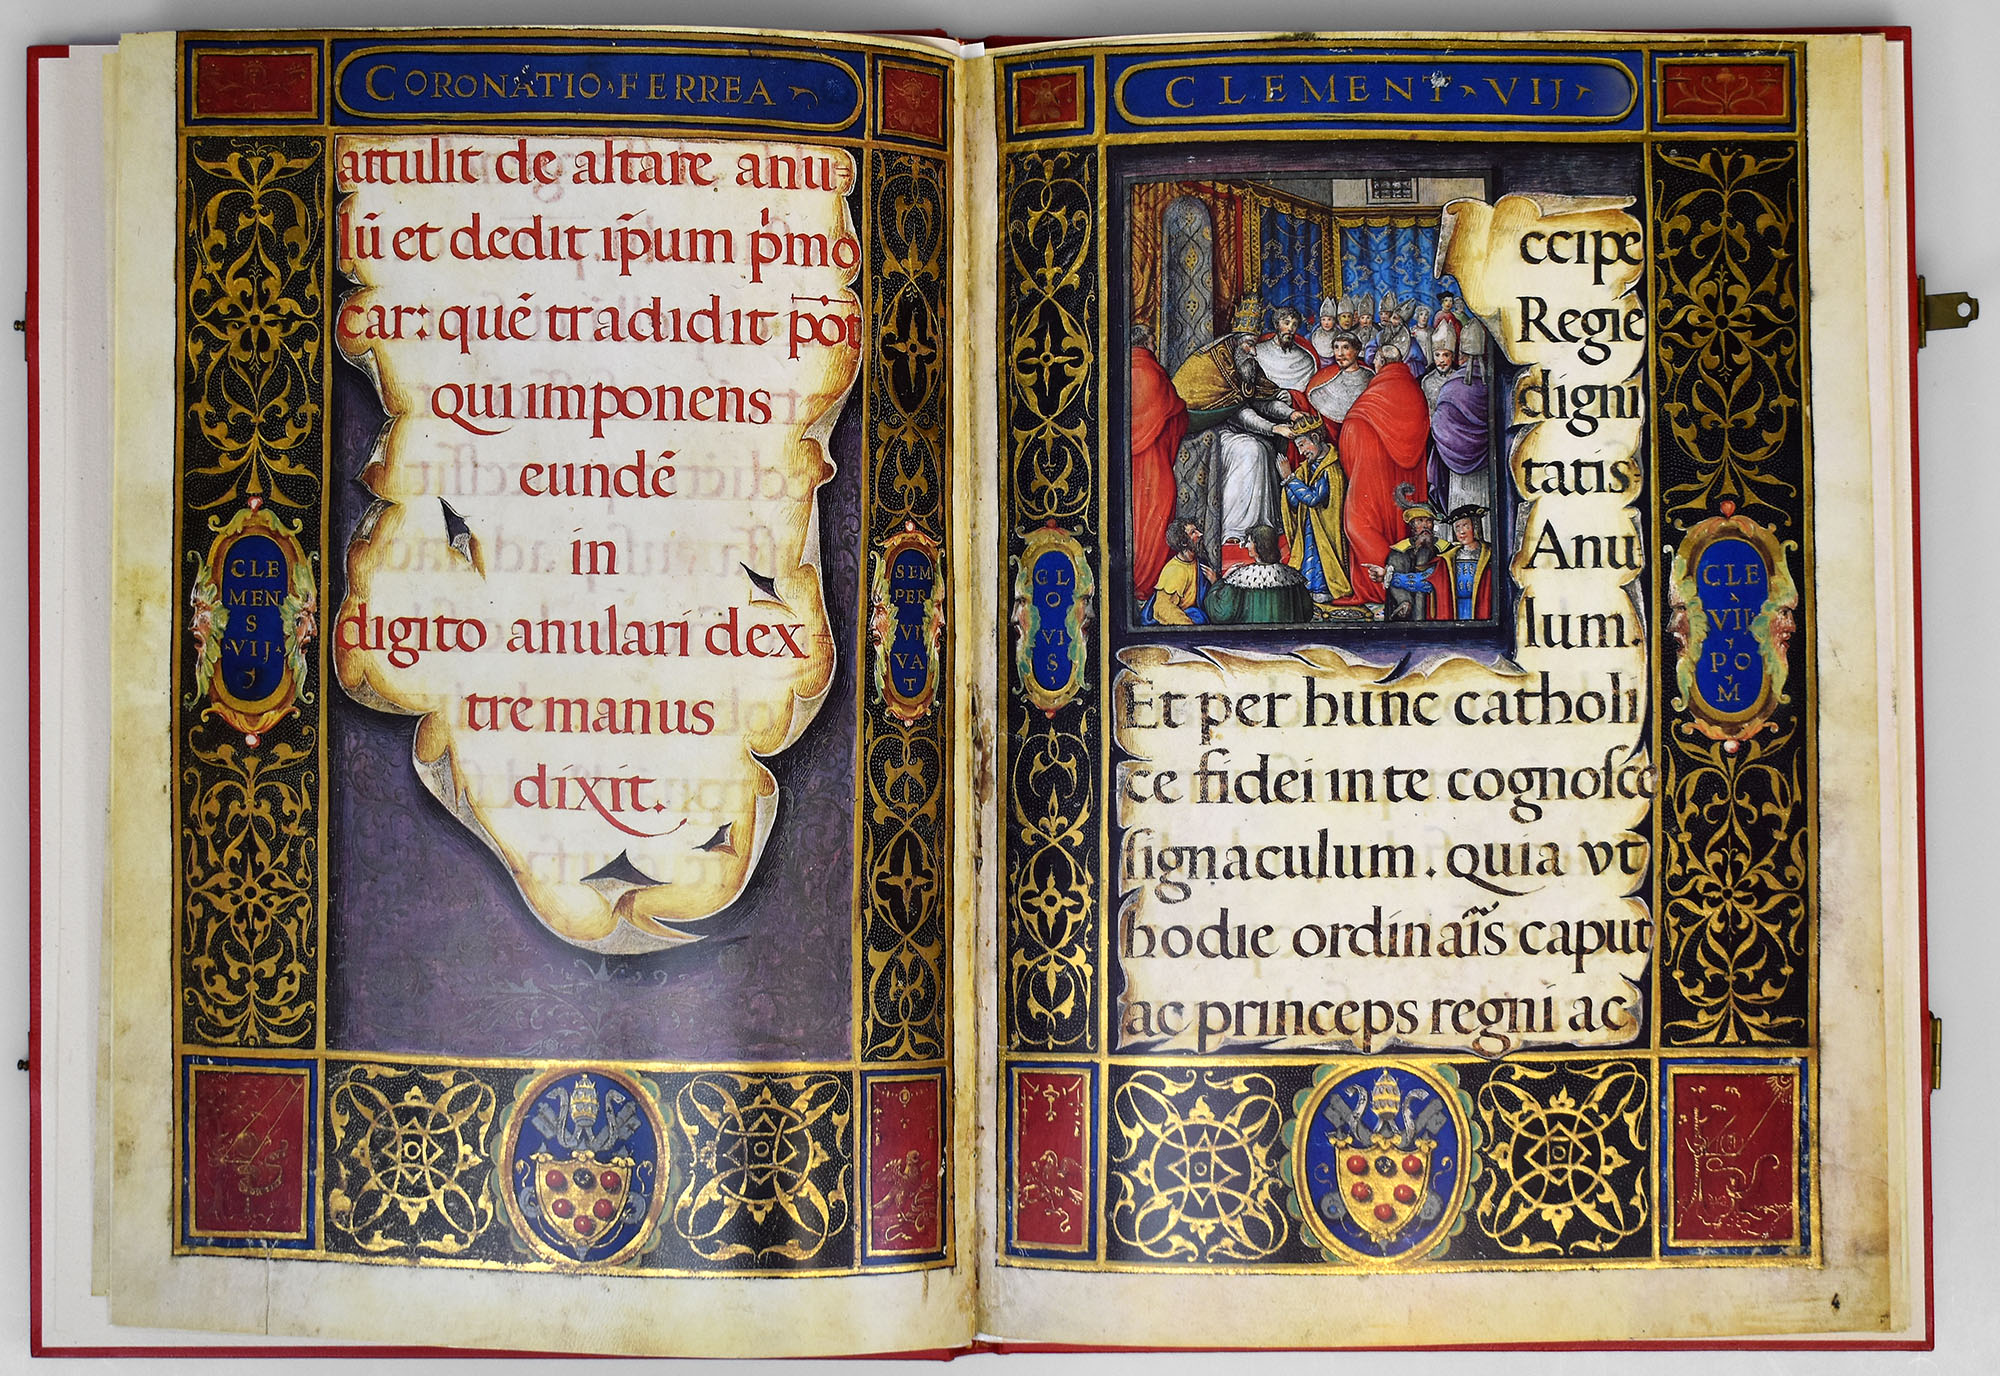 CORONATIO·FERREA
attulit de altare anu=
lū et dedit ip̄um pͥmo
car: quē tradidit pōt
qui imponens
eundē
in
digito anulari dex=
tre manus
dixit.
CLE
MEN
S
·VIJ·
SEM
PER
VI
VA
T
CLEMENT·VIJ·
ccipe
Regie
digni
tatis=
Anu=
lum.
Et per hunc catholi
ce fidei in te cognosce
signaculum. quia vt
hodie ordinaĩs caput
ac princeps regni ac
GL
O
VI
S
CLE
VIJ
PO
M
4